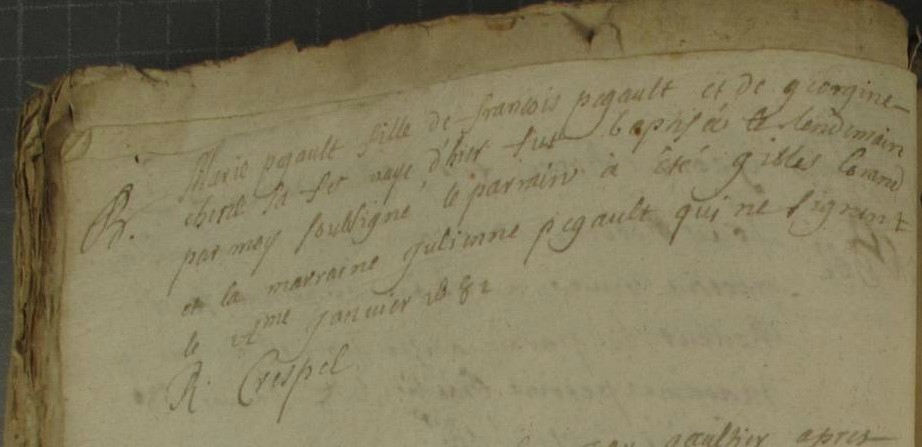 B. Marie pegault fille de francois pegault et de georgine
chere sa fe naye d'hier fut baptisée le lendemain
par moy soubsigné le parrain a été gisles
et la marraine julienne pegault qui ne signent
le janvier
R. Crespel
gaultier apres